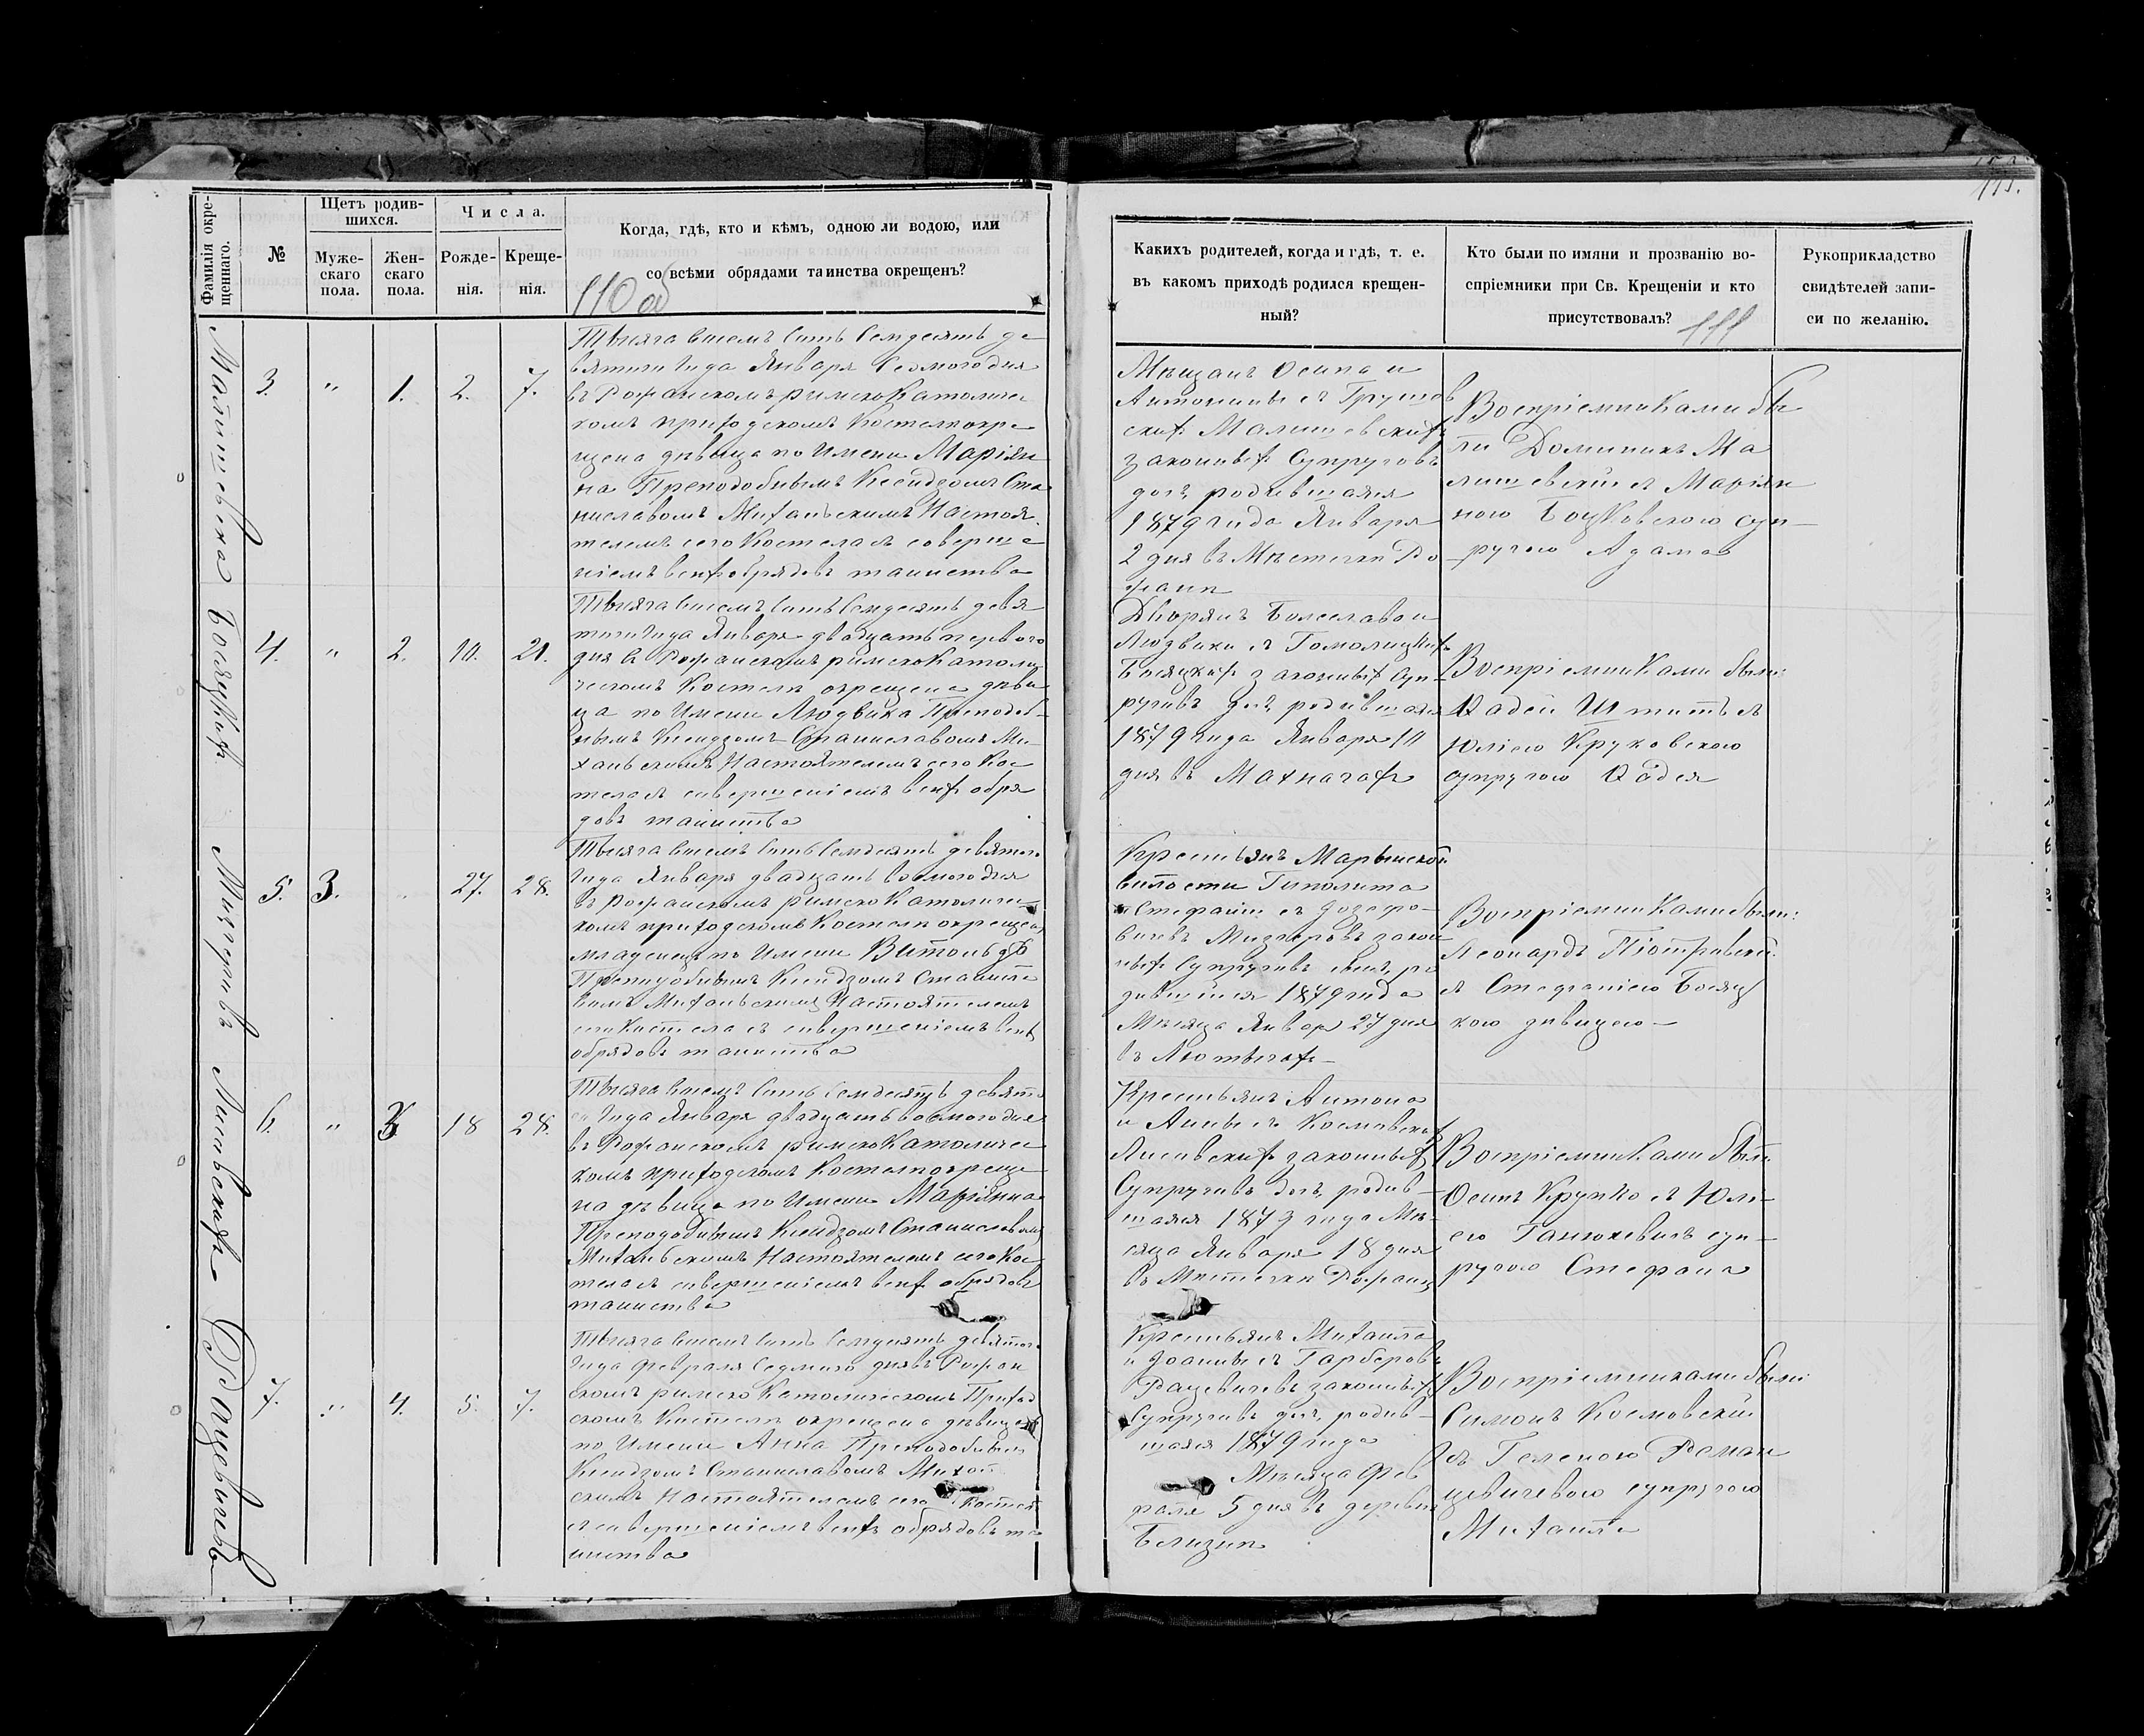 Фамилія окре-
щеннаго.
№
Щетъ родив-
шихся.
Муже-
скаго
пола.
Жен-
скаго
пола.
Числа.
Рожде-
нія.
Креще-
нія.
Когда, гдѣ, кто и кѣмъ, одною ли водою, или
со всѣми обрядами таинства окрещенъ?
110 об
Малишевская
3.
"
1.
2.
7.
Тысяча восемь сотъ семдесять де-
вятого года Января седмого дня
въ Рожанскомъ римско Католичес
комъ приходскомъ Костелѣ окре
щена дѣвица по имени Маріян
на Преподобнымъ Ксендзомъ Ста
ниславомъ Михальскимъ Настоя
телемъ сего Костела съ соверше
ніемъ всѣхъ обрядовъ таинства
Босяцкихъ
4.
"
2.
10.
21.
Тысяча восемь сотъ семдесять девя
того года Января двадцать первого
дня въ Рожанскомъ римско Католи
ческомъ Костелѣ окрещена дѣви
ца по имени Людвика Преподоб-
нымъ Ксендзомъ Станиславомъ Ми-
хальскимъ Настоятелемъ сего Кос
тела съ совершеніемъ всѣхъ обря
довъ таинства
Мизгеровъ
5.
3.
27.
28.
Тысяча восемь сотъ семдесять девятого
года Января двадцать восмого дня
въ Рожанскомъ римско Католичес
комъ приходскомъ Костелѣ окрещенъ
младенецъ по имени Витольдъ
Преподобнымъ Ксендзомъ Станисла
вомъ Михальскимъ Настоятелемъ
сего Костела съ совершеніемъ всѣхъ
обрядовъ таинства
Лисовскихъ
6.
"
3
18
28.
Тысяча восемь сотъ семдесятъ девято
го года Января двадцать восмого дня
въ Рожанскомъ римско Католичес
комъ приходскомъ Костелѣ окреще
на дѣвица по имени Маріянна
Преподобнымъ Ксендзомъ Станиславомъ
Михальскимъ Настоятелемъ сего Кос
тела съ совершеніемъ всѣхъ обрядовъ
таинства
Рацевичевъ
7.
"
4.
5.
7.
Тысяча восемь сотъ семдесять девятого
года Февраля седмого дня въ Рожан
скомъ римско Католическомъ Приход
скомъ Костелѣ окрещена дѣвица
по имени Анна Преподобнымъ
Ксендзомъ Станиславомъ Михаль
скимъ Настоятелемъ сего Костела
съ совершеніемъ всѣхъ обрядовъ та
инства
Какихъ родителей, когда и гдѣ, т. е.
въ какомъ приходѣ родился крещен-
ный?
Кто были по имяни и прозванію во-
спріемники при Св. Крещеніи и кто
присутствовалъ?
111
Рукоприкладство
свидѣтелей запи-
си по желанію.
Мѣщанъ Осипа и
Антонины съ Грушов
скихъ Малишевскихъ
законныхъ Супруговъ
дочь родившаяся
1879 года Января
2 дня въ Мѣстечкѣ Ро
жанѣ
Воспріемниками бы
ли Доминикъ Ма
лишевскій съ Маріян
ною Боцковскою суп-
ругою Адама
Дворянъ Болеслава и
Людвики съ Гомолицкихъ
Босяцкихъ законныхъ Суп-
руговъ дочь родившаяся
1879 года Января 10
дня въ Махначахъ
Воспріемниками были:
Фадей Шмитъ съ
Юліею Круковскою
супругою Фадея
Крестьянъ Марынской
волости Гиполита
и Стефаніи съ Іозефо-
вичевъ Мизгеровъ закон
ныхъ Супруговъ сынъ ро
дившійся 1879 года
Мѣсяца Января 27 дня
въ Лютычахъ
Воспріемниками были:
Леонардъ Піотровскій
съ Стефаніею Босяц
кою дѣвицею
Крестьянъ Антона
и Анны съ Космовскихъ
Лисовскихъ законныхъ
Супруговъ дочь родив-
шаяся 1879 года Мѣ-
сяца Января 18 дня
въ Мѣстечкѣ Рожанѣ
Воспріемниками были
Осипъ Крупко съ Юлі-
ею Ганюкевичъ суп-
ругою Стефана
Крестьянъ Михаила
и Іоанны съ Гарберовъ
Рацевичевъ законныхъ
Супруговъ дочь родив-
шаяся 1879 года
Мѣсяца Фев
раля 5 дня въ деревнѣ
Воспріемниками были
Симонъ Космовскій
съ Геленою Роман
цевичевою супругою
Михаила